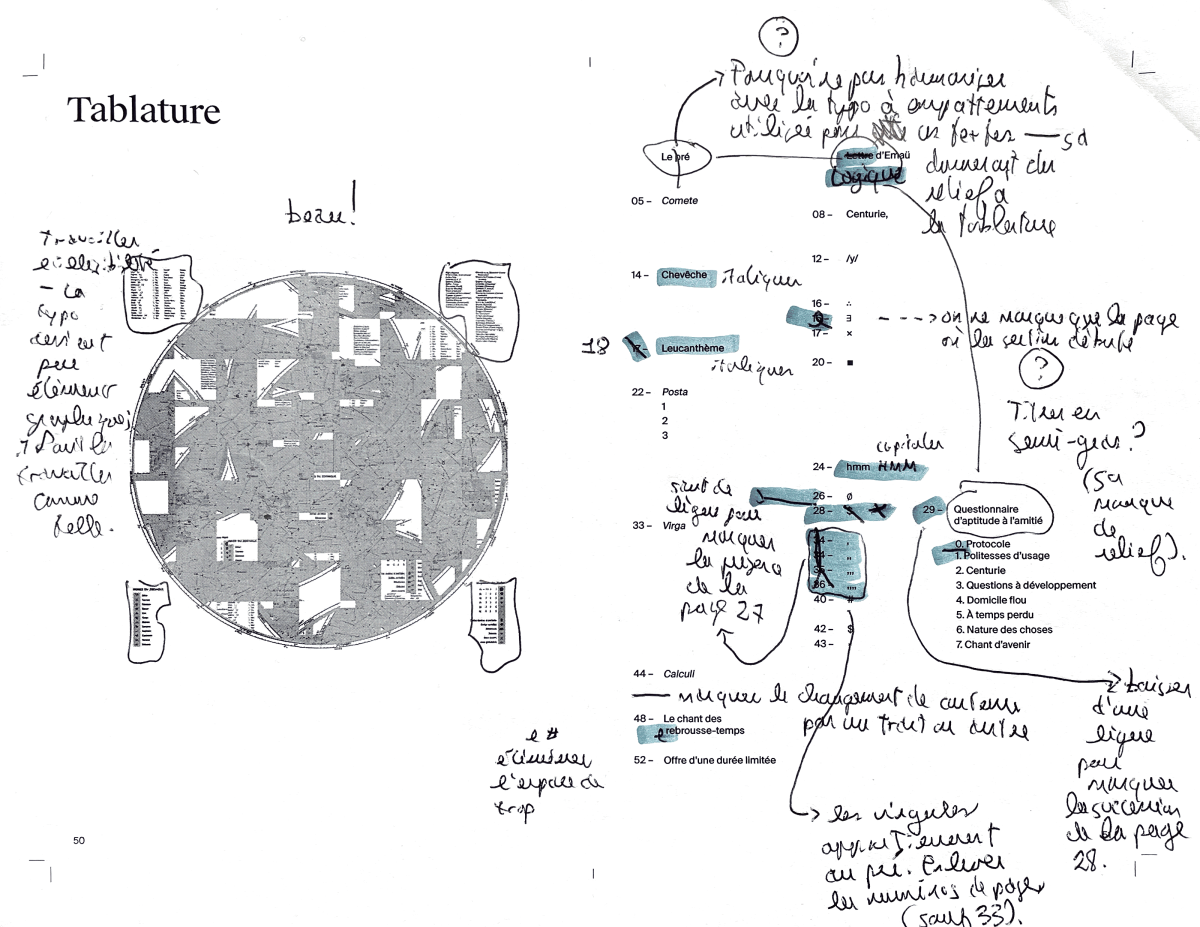 Tablature
beau!
Travailler
et lisibilité
– la
typo
devient
peu
élément
graphique;
il faut la
travailler
comme
telle.
50
e #
éliminer
l'espace de
trop
?
Pourquoi ne pas harmoniser
avec la typo à empattements
utilisée pour ces textes — ça
donnerait du
relief à
la tablature
Le pré
Lettre d'Emaü
Logique
05 – Comete
08 – Centurie,
12 – /y/
14 – Chevêche
italiques
16 – ∴
16 – ∃
on ne marque que la page
où la section débute
17 – ×
18
17 – Leucanthème
italiques
20 – ■
22 – Posta
1
2
3
?
Titrer en
semi-gras?
(Ça
manque
de
relief).
capitales
24 – hmm HMM
26 – ø
28 – $
saut de
ligne pour
marquer
la présence
de la
page 27
29 – Questionnaire
d'aptitude à l'amitié
0. Protocole
1. Politesses d'usage
2. Centurie
3. Questions à développement
4. Domicile flou
5. À temps perdu
6. Nature des choses
7. Chant d'avenir
33 – Virga
34 – ,
34 – ,,
,,,
36 ,,,,
40 – #
42 – $
43 –
44 – Calculi
marquer le changement de
par un trait ou autre
48 – Le chant des
rebrousse-temps
e
52 – Offre d'une durée limitée
les virgules
appartiennent
au pré. Enlever
les numéros de pages
(sauf 33).
baisser
d'une
ligne
pour
marquer
la succession
de la page
28.